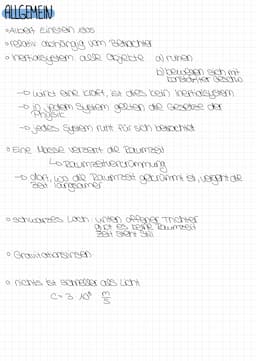 ALLGEMEIN
• Albert Einstein 1905
• relativ abhängig vom Betrachter
• Inertialsystem alle Objekte a) ruhen
b) bewegen sich mit konstanter Geschw.
→ wirkt eine Kraft, ist dies kein Inertialsystem
→ in jedem System gelten die Gesetze der Physik
→ jedes System ruht für sich betrachtet
• Eine Masse verzerrt die Raumzeit
↳ Raumzeitverkrümmung
→ dort, wo die Raumzeit gekrümmt ist, vergeht die Zeit langsamer
• schwarzes Loch: unten offener Trichter
gibt es keine Raumzeit
Zeit steht still
• Gravitationslinsen
• nichts ist schneller als Licht
c = 3 · 10⁸ m/s